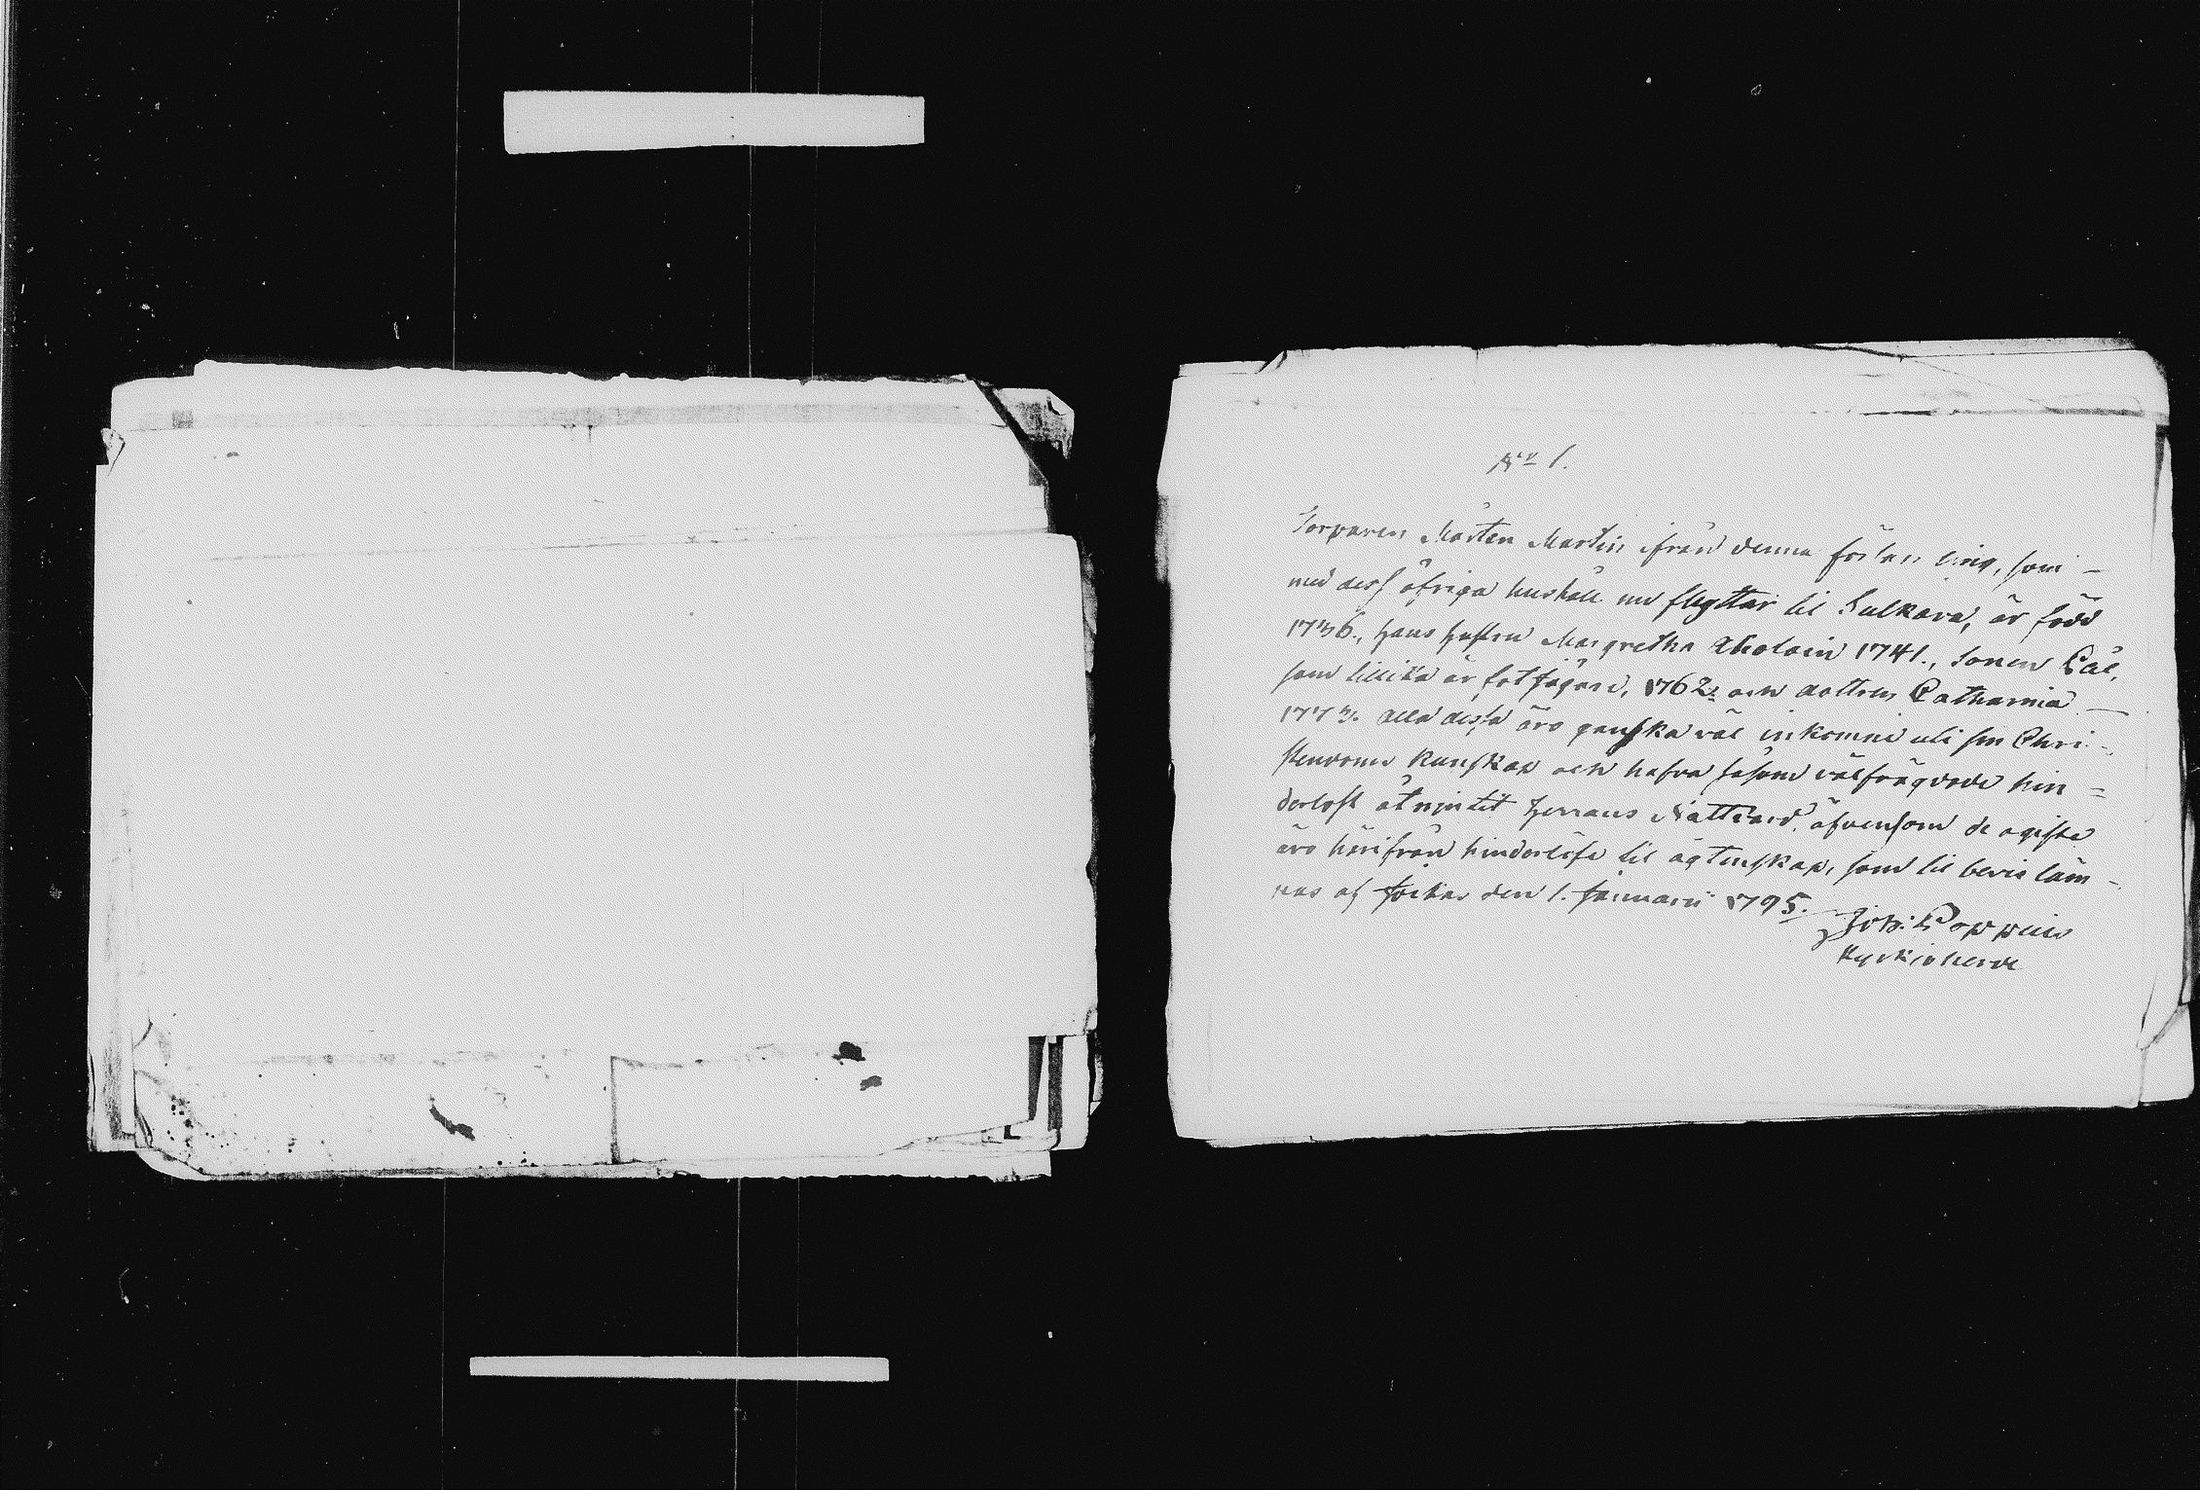 No 1.
Torparen Mårten Martin ifrån denna församling, som
med dess öfriga hushåll nu flyttar til Sulkava, är född
1736., hans hustru Margretha Aholain 1741., sonen Pål,
som tillika är 1762. och dottren Catharina
1773. Alla dessa äro ganska väl inkomne uti sin Chri-
stendoms kunskap och hafva såsom välfrägdade hin-
derlöst åtnjutit Herrans Nattvard, äfvensom de ogifta
äro härifrån hinderlöse til ägtenskap, som til bevis läm-
nas af Jockas den 1. Januarii 1795.
Joh: Poppius
Kyrkioherde